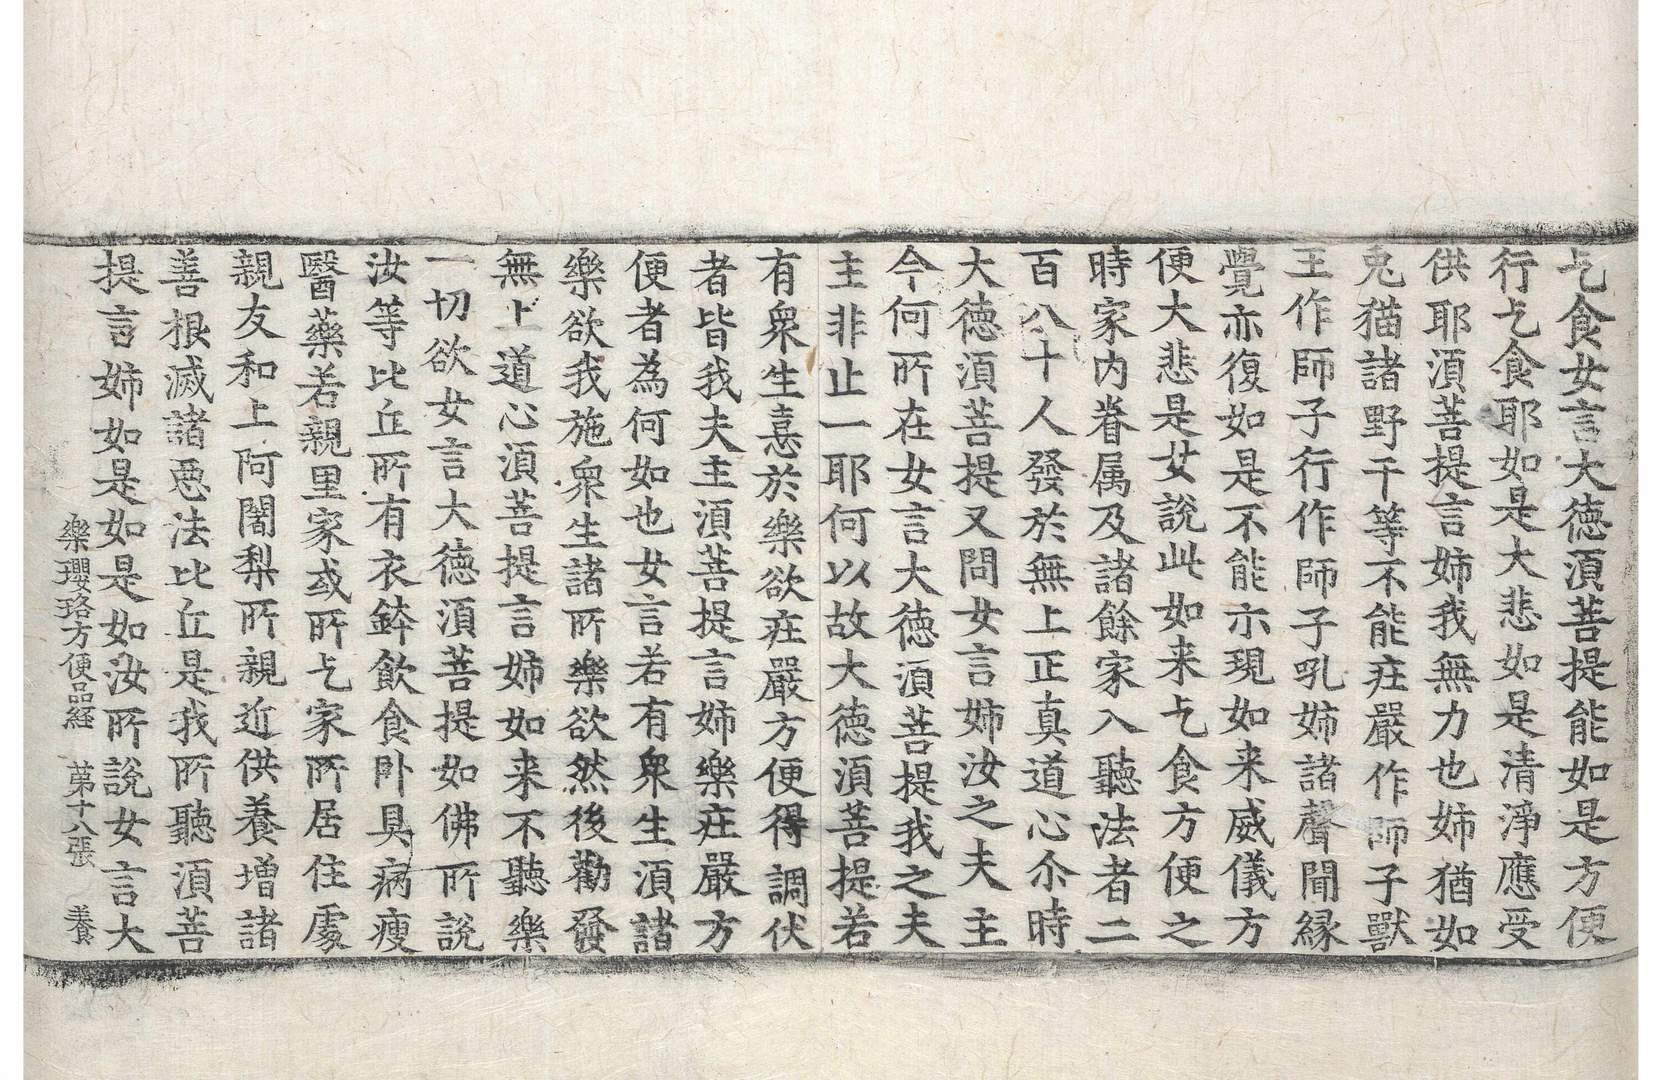 乞食女言大德湏菩提能如是方便
行乞食耶如是大悲如是清淨應受
供耶湏菩提言姉我無力也姉猶如
兎猫諸野干等不能疘嚴作師子獸
王作師子行作師子吼姉諸聲聞縁
覺亦復如是不能示現如来威儀方
便大悲是女說此如来乞食方便之
時家内眷属及諸餘家入聽法者二
百八十人發於無上正真道心尒時
大德湏菩提又問女言姉汝之夫主
今何所在女言大德湏菩提我之夫
主非止一耶何以故大德湏菩提若
有衆生憙於樂欲疘嚴方便得調伏
者皆我夫主湏菩提言姉樂疘嚴方
便者為何如也女言若有衆生湏諸
樂欲我施衆生諸所樂欲然後勸發
無上道心湏菩提言姉如来不聽樂
一切欲女言大德湏菩提如佛所說
汝等比丘所有衣鉢飲食卧具病瘦
醫藥若親里家或所乞家所居住處
親友和上阿闍梨所親近供養增諸
善根滅諸惡法比丘是我所聽湏菩
提言姉如是如是如汝所說女言大
樂瓔珞方便品経　第十八張　養